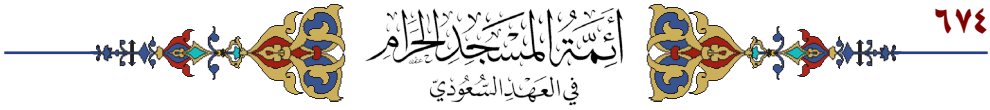 ٦٧٤
أَئِمَّةُ المَسْجِدِ الحَرَامِ
في العَهْدِ السُّعُودِيّ